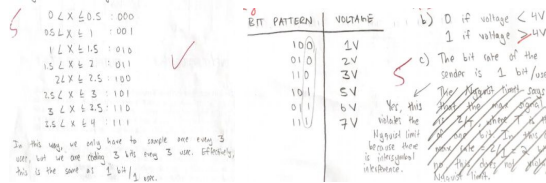 5
0 < X ≤ 0.5 : 000
0.5 < X ≤ 1 : 001
1 < X ≤ 1.5 : 010
1.5 < X ≤ 2 : 011
2 < X ≤ 2.5 : 100
2.5 < X ≤ 3 : 101
3 < X ≤ 2.5 : 110
2.5 < X ≤ 4 : 111
In this way, we only have to sample once every 3
usec, but we are coding 3 bits every 3 usec. Effectively,
this is the same as 1 bit/1 usec.
BIT PATTERN VOLTAGE
100 1V
010 2V
110 3V
101 5V
011 6V
111 7V
b) 0 if voltage < 4V
1 if voltage > 4V
5
c) The bit rate of the
sender is 1 bit/usec
Yes, this
violates the
Nyquist limit
because there
is intersymbol
interference.
The Nyquist limit says
that the max signal
is 2/T, where T is
of one bit. In this
max rate = 2/1 = 2
no this does not violate
Nyquist limit.